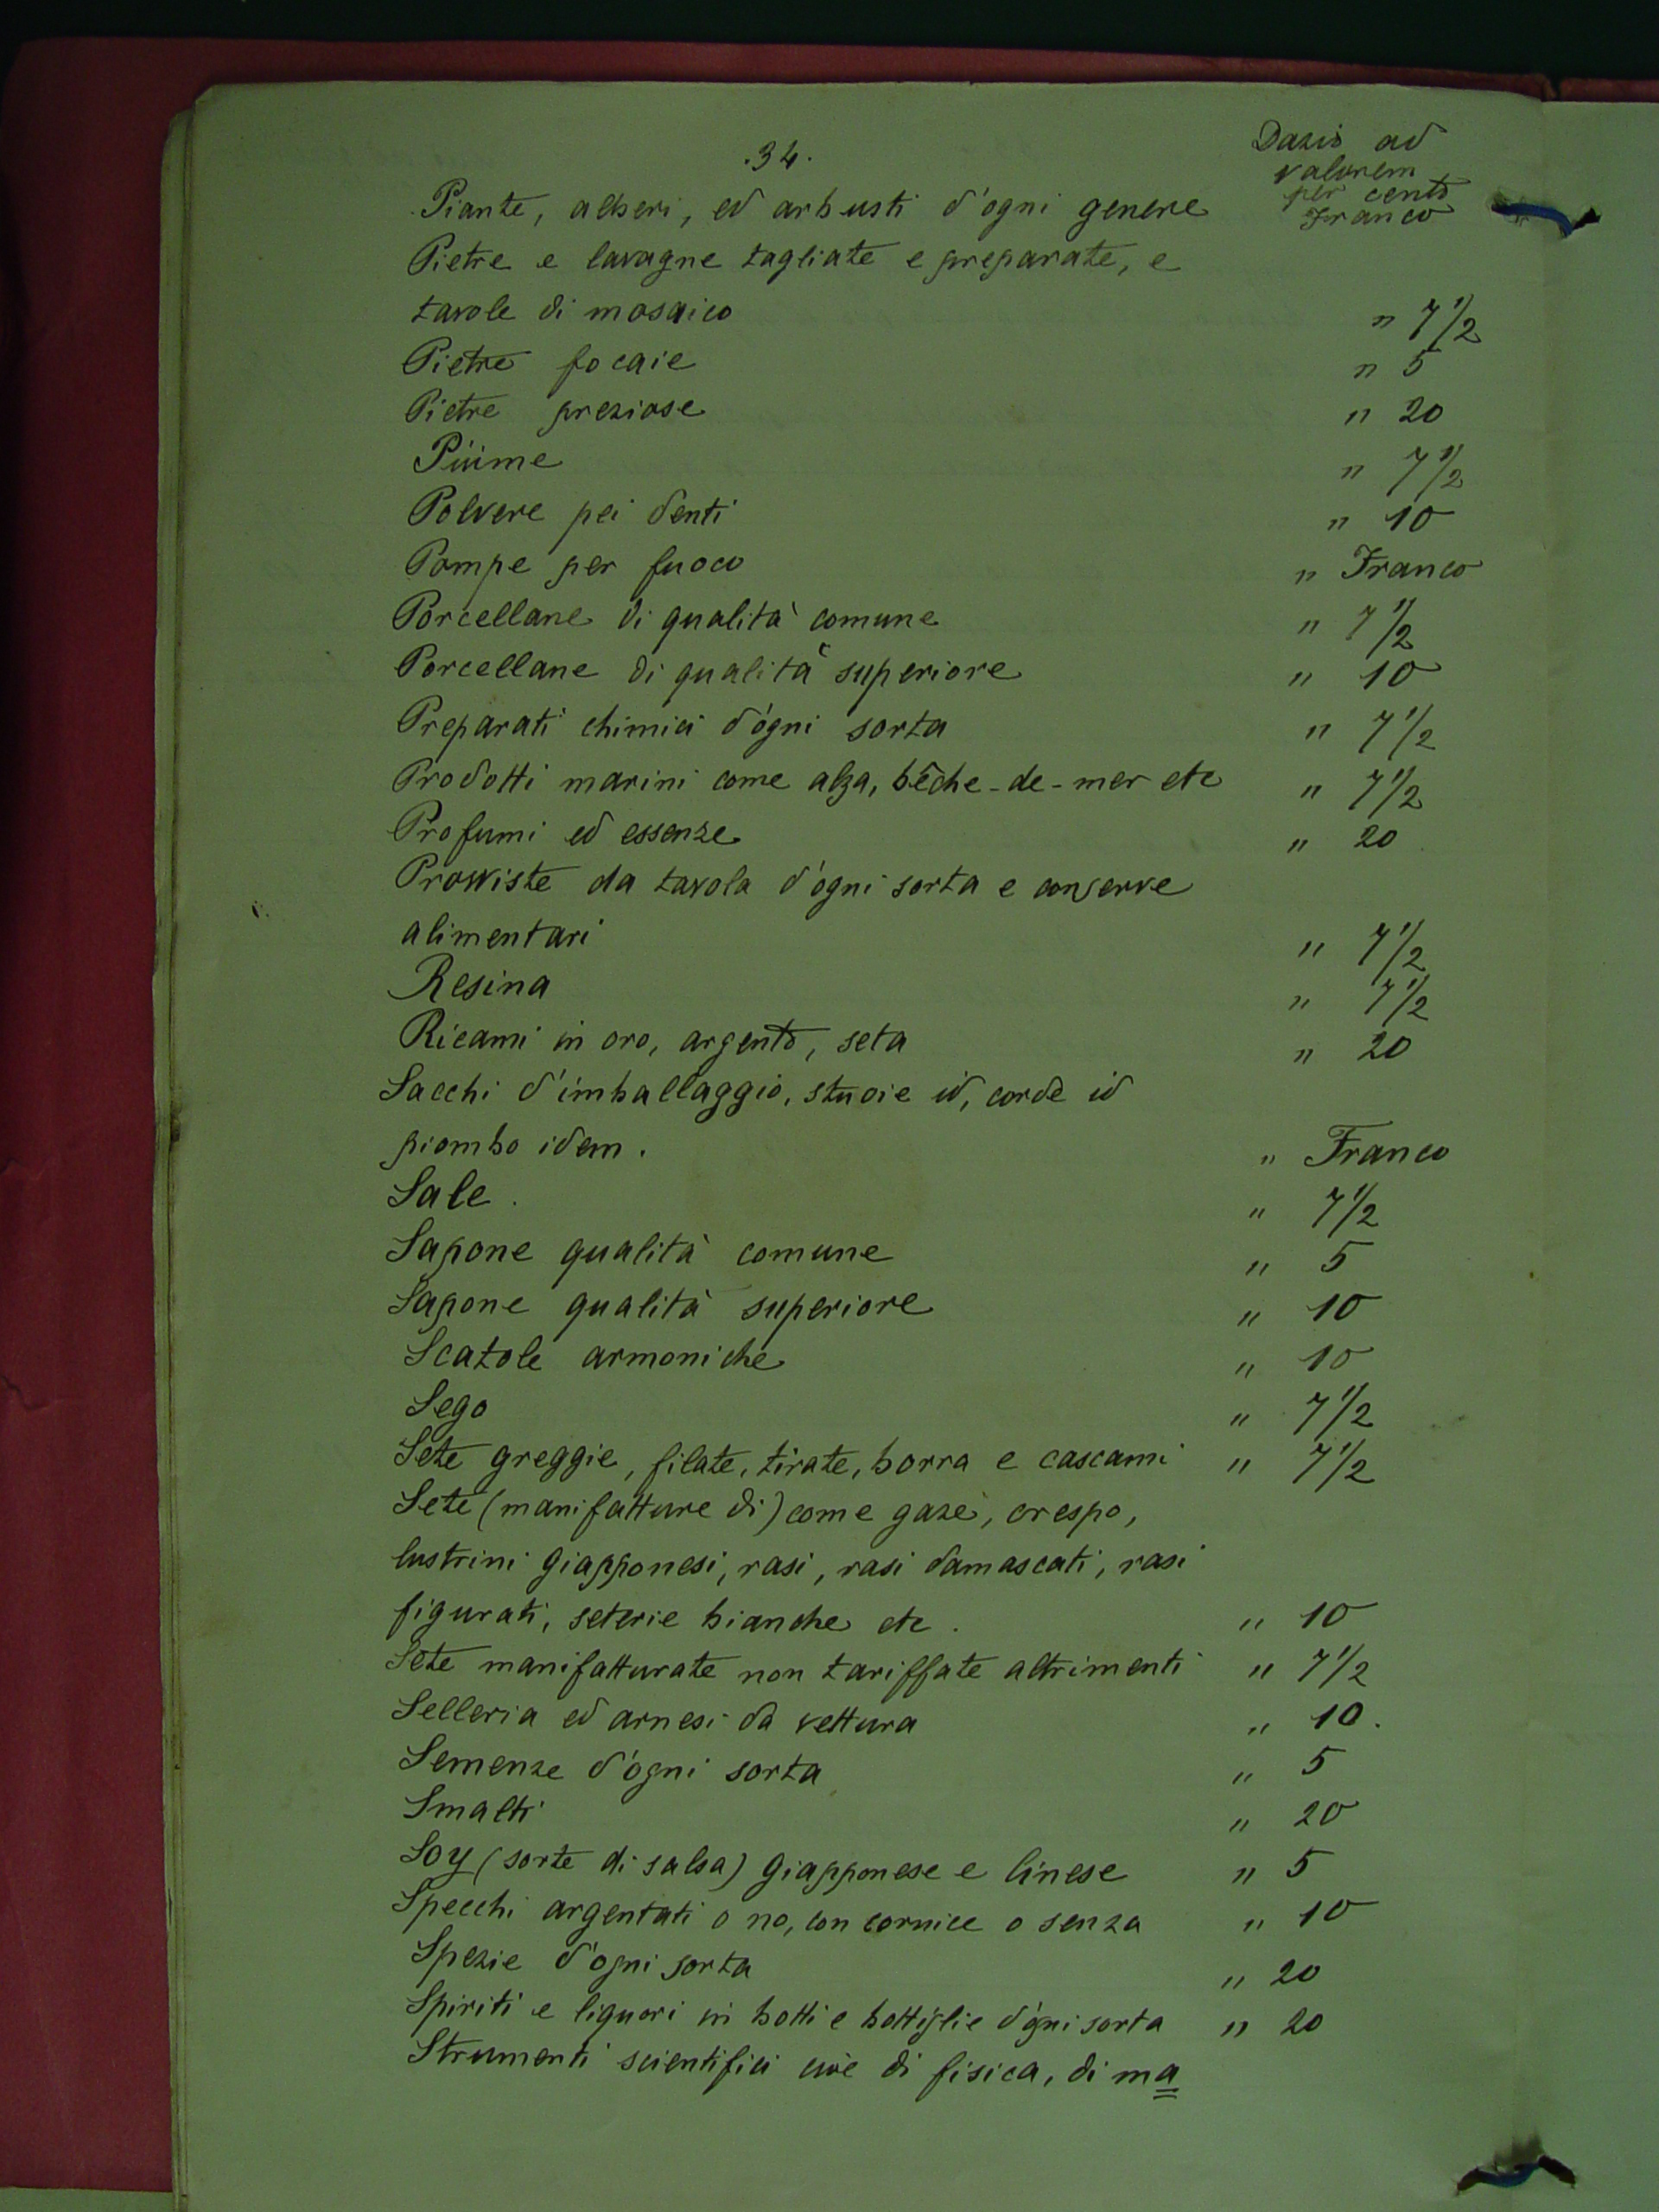 .34.
Dazio ad
valorem
per cento
Piante, alberi, ed arbusti d'ogni genere Franco
Pietre e lavagne tagliate e preparate, e
tavole di mosaico " 7 1/2
Pietre focaie " 5
Pietre preziose " 20
Piume " 7 1/2
Polvere pei denti " 10
Pompe per fuoco " Franco
Porcellane di qualità comune " 7 1/2
Porcellane di qualità superiore " 10
Preparati chimici d'ogni sorta " 7 1/2
Prodotti marini come alga, bêche-de-mer etc " 7 1/2
Profumi ed essenze " 20
Provviste da tavola d'ogni sorta e conserve
alimentari " 7 1/2
Resina " 7 1/2
Ricami in oro, argento, seta " 20
Sacchi d'imballaggio, stuoie id, corde id
piombo idem. " Franco
Sale. " 7 1/2
Sapone qualità comune " 5
Sapone qualità superiore " 10
Scatole armoniche " 10
Sego " 7 1/2
Sete greggie, filate, tirate, borra e cascami " 7 1/2
Sete (manifatture di) come gaze, crespo,
lustrini giapponesi, rasi, rasi damascati, rasi
figurati, seterie bianche etc. " 10
Sete manifatturate non tariffate altrimenti " 7 1/2
Selleria ed arnesi da vettura " 10.
Semenze d'ogni sorta " 5
Smalti " 20
Soy (sorte di salsa) giapponese e Cinese " 5
Specchi argentati o no, con cornice o senza " 10
Spezie d'ogni sorta " 20
Spiriti e liquori in botti e bottiglie d'ogni sorta " 20
Strumenti scientifici cioè di fisica, di ma